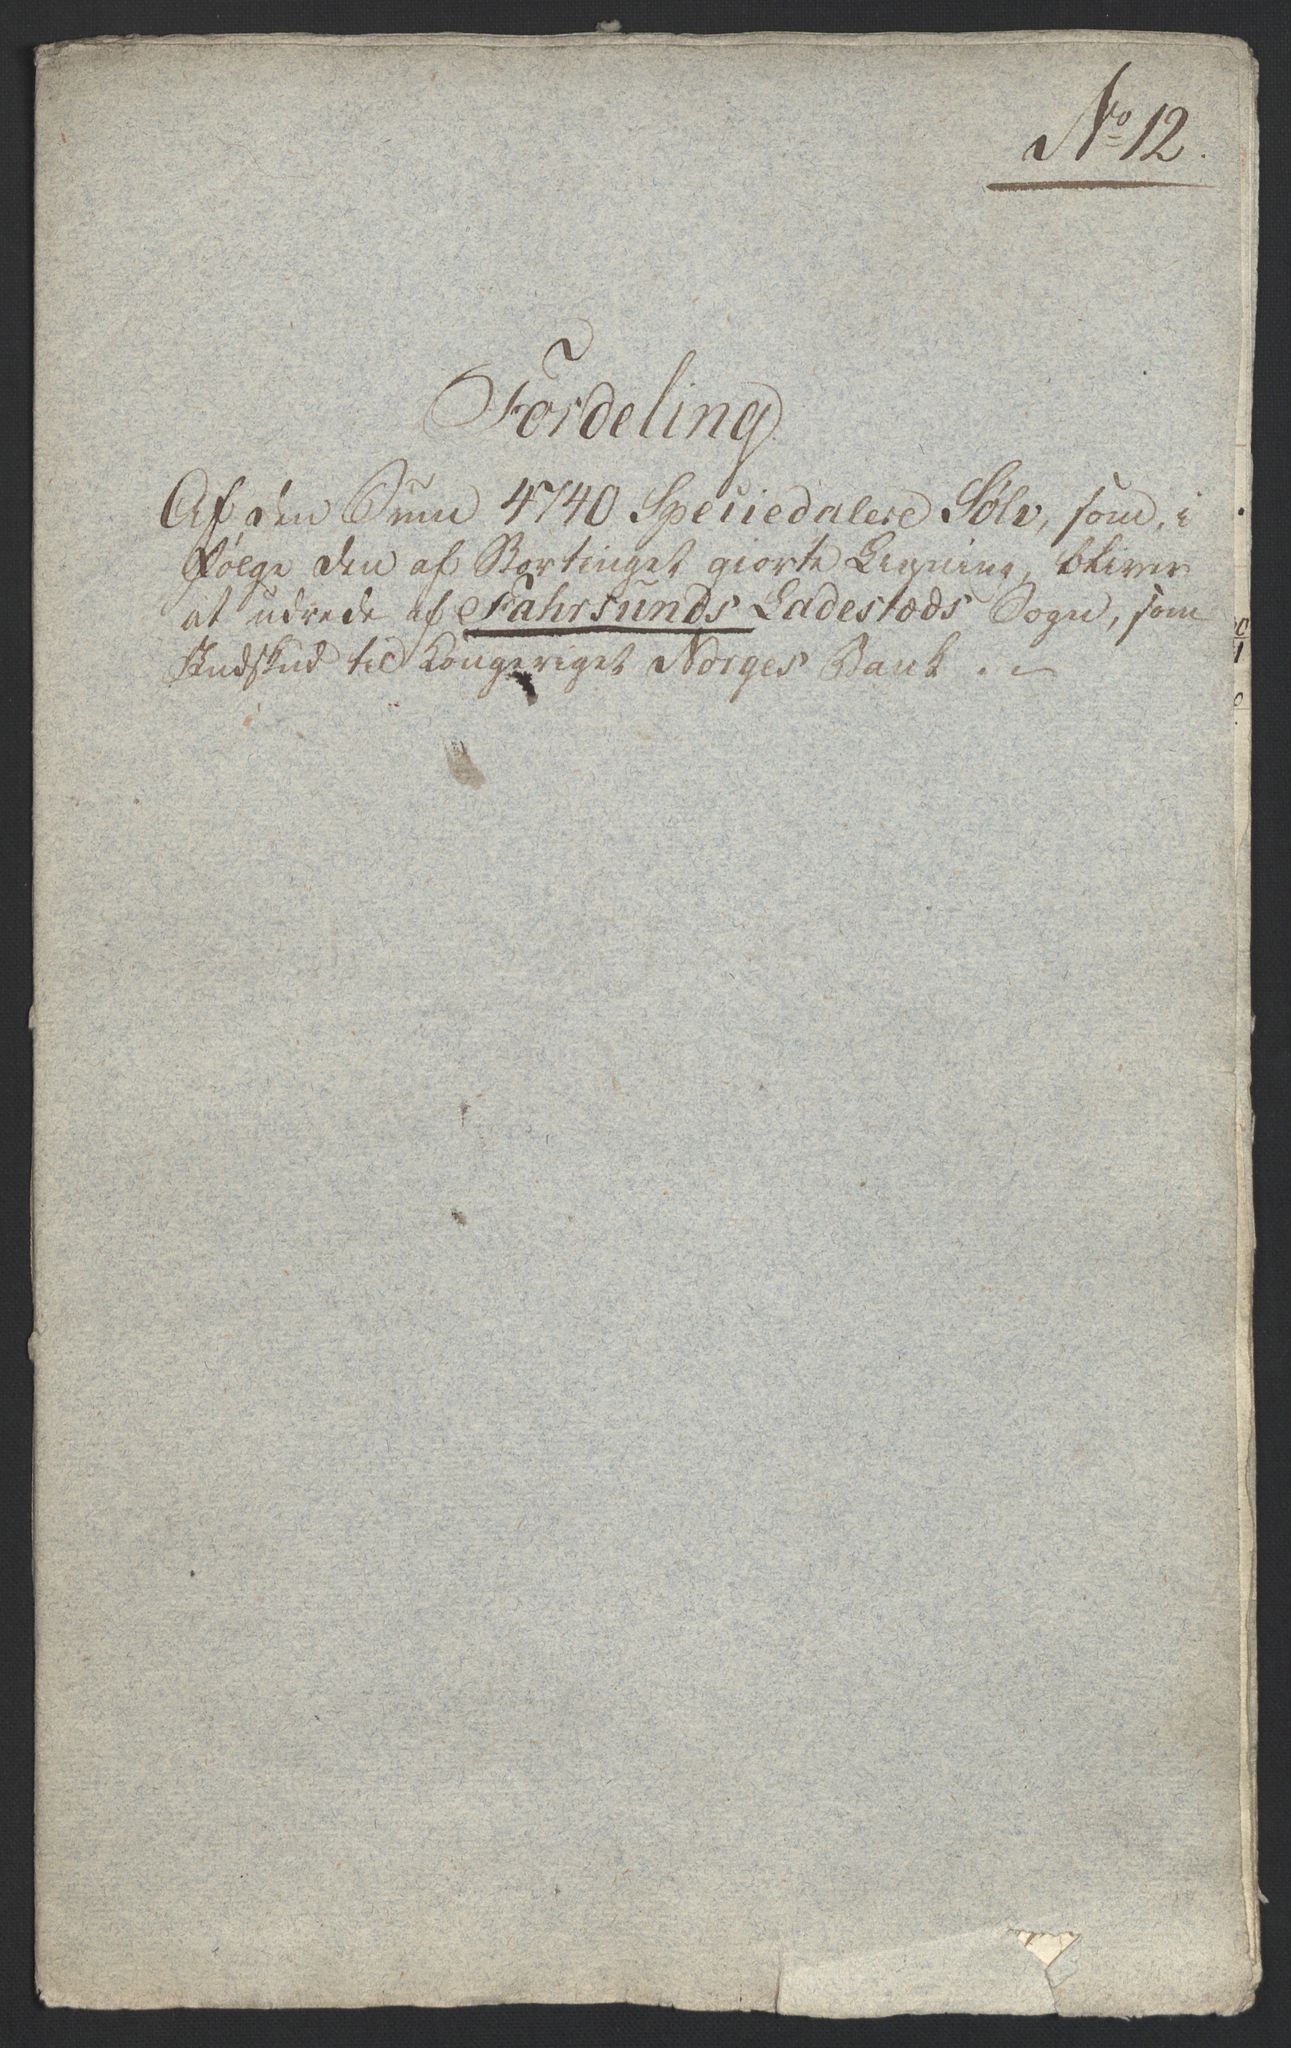 No 12.
Fordeling
Af den Sum 4740 Speciedalere Sølv, som, i
Følge den af Stortinget giorte Ligning, bliver
at udrede af Fahrsunds Ladestæds Sogn, som
Indskud til Kongeriget Norges Bank . –